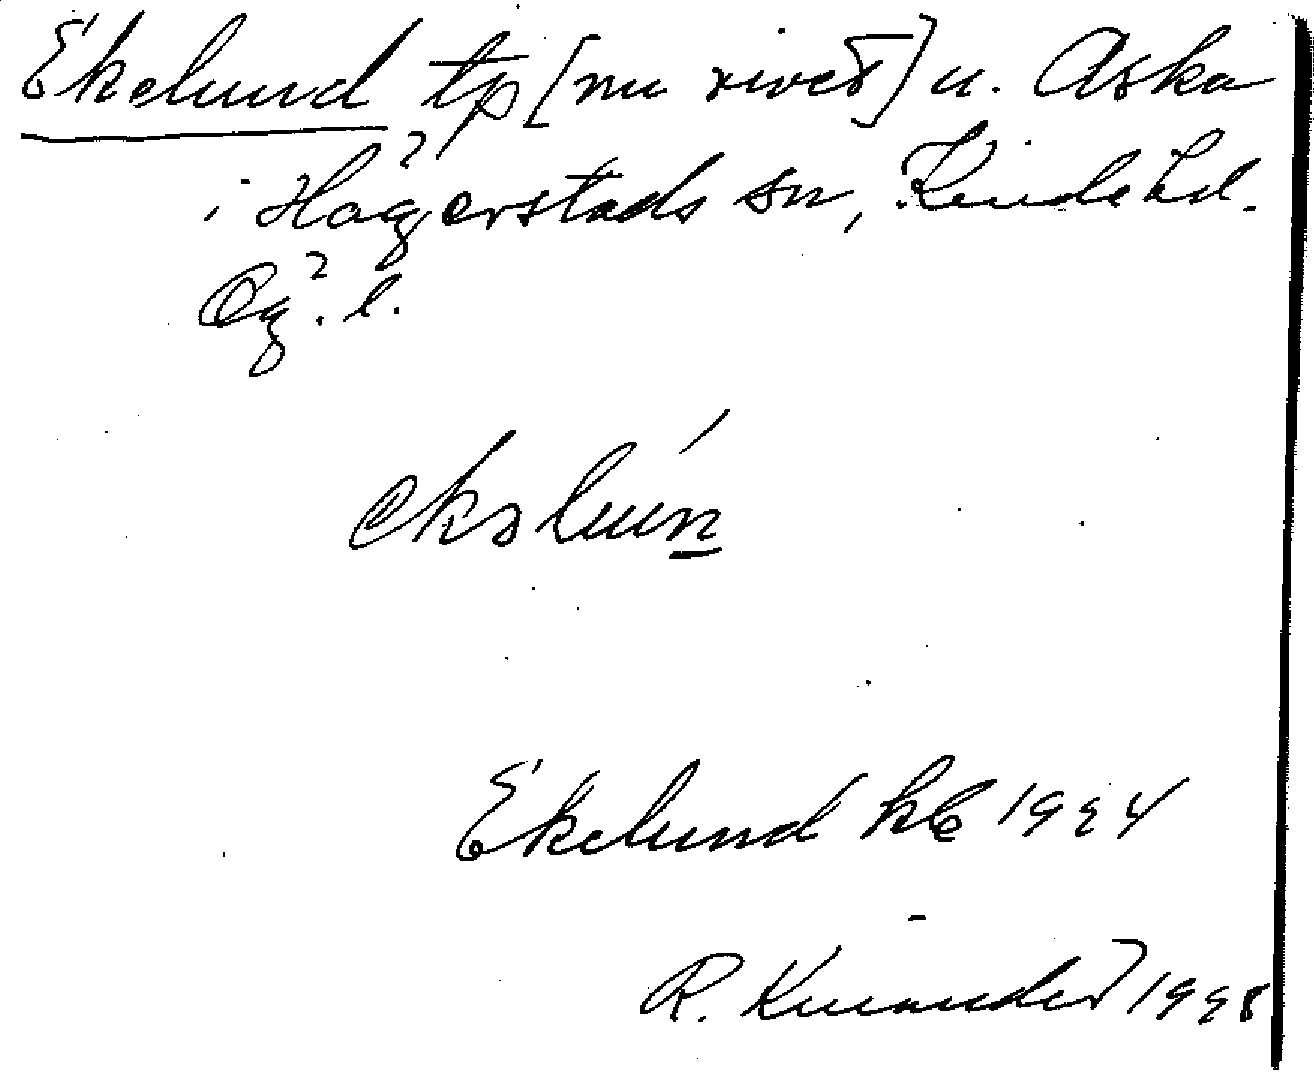 Ekelund tp [nu rivet] u. Aska
i Hägerstads sn, Kinda hd.
Ög. l.
Ekelund kb 1994
R. Kinander 1998